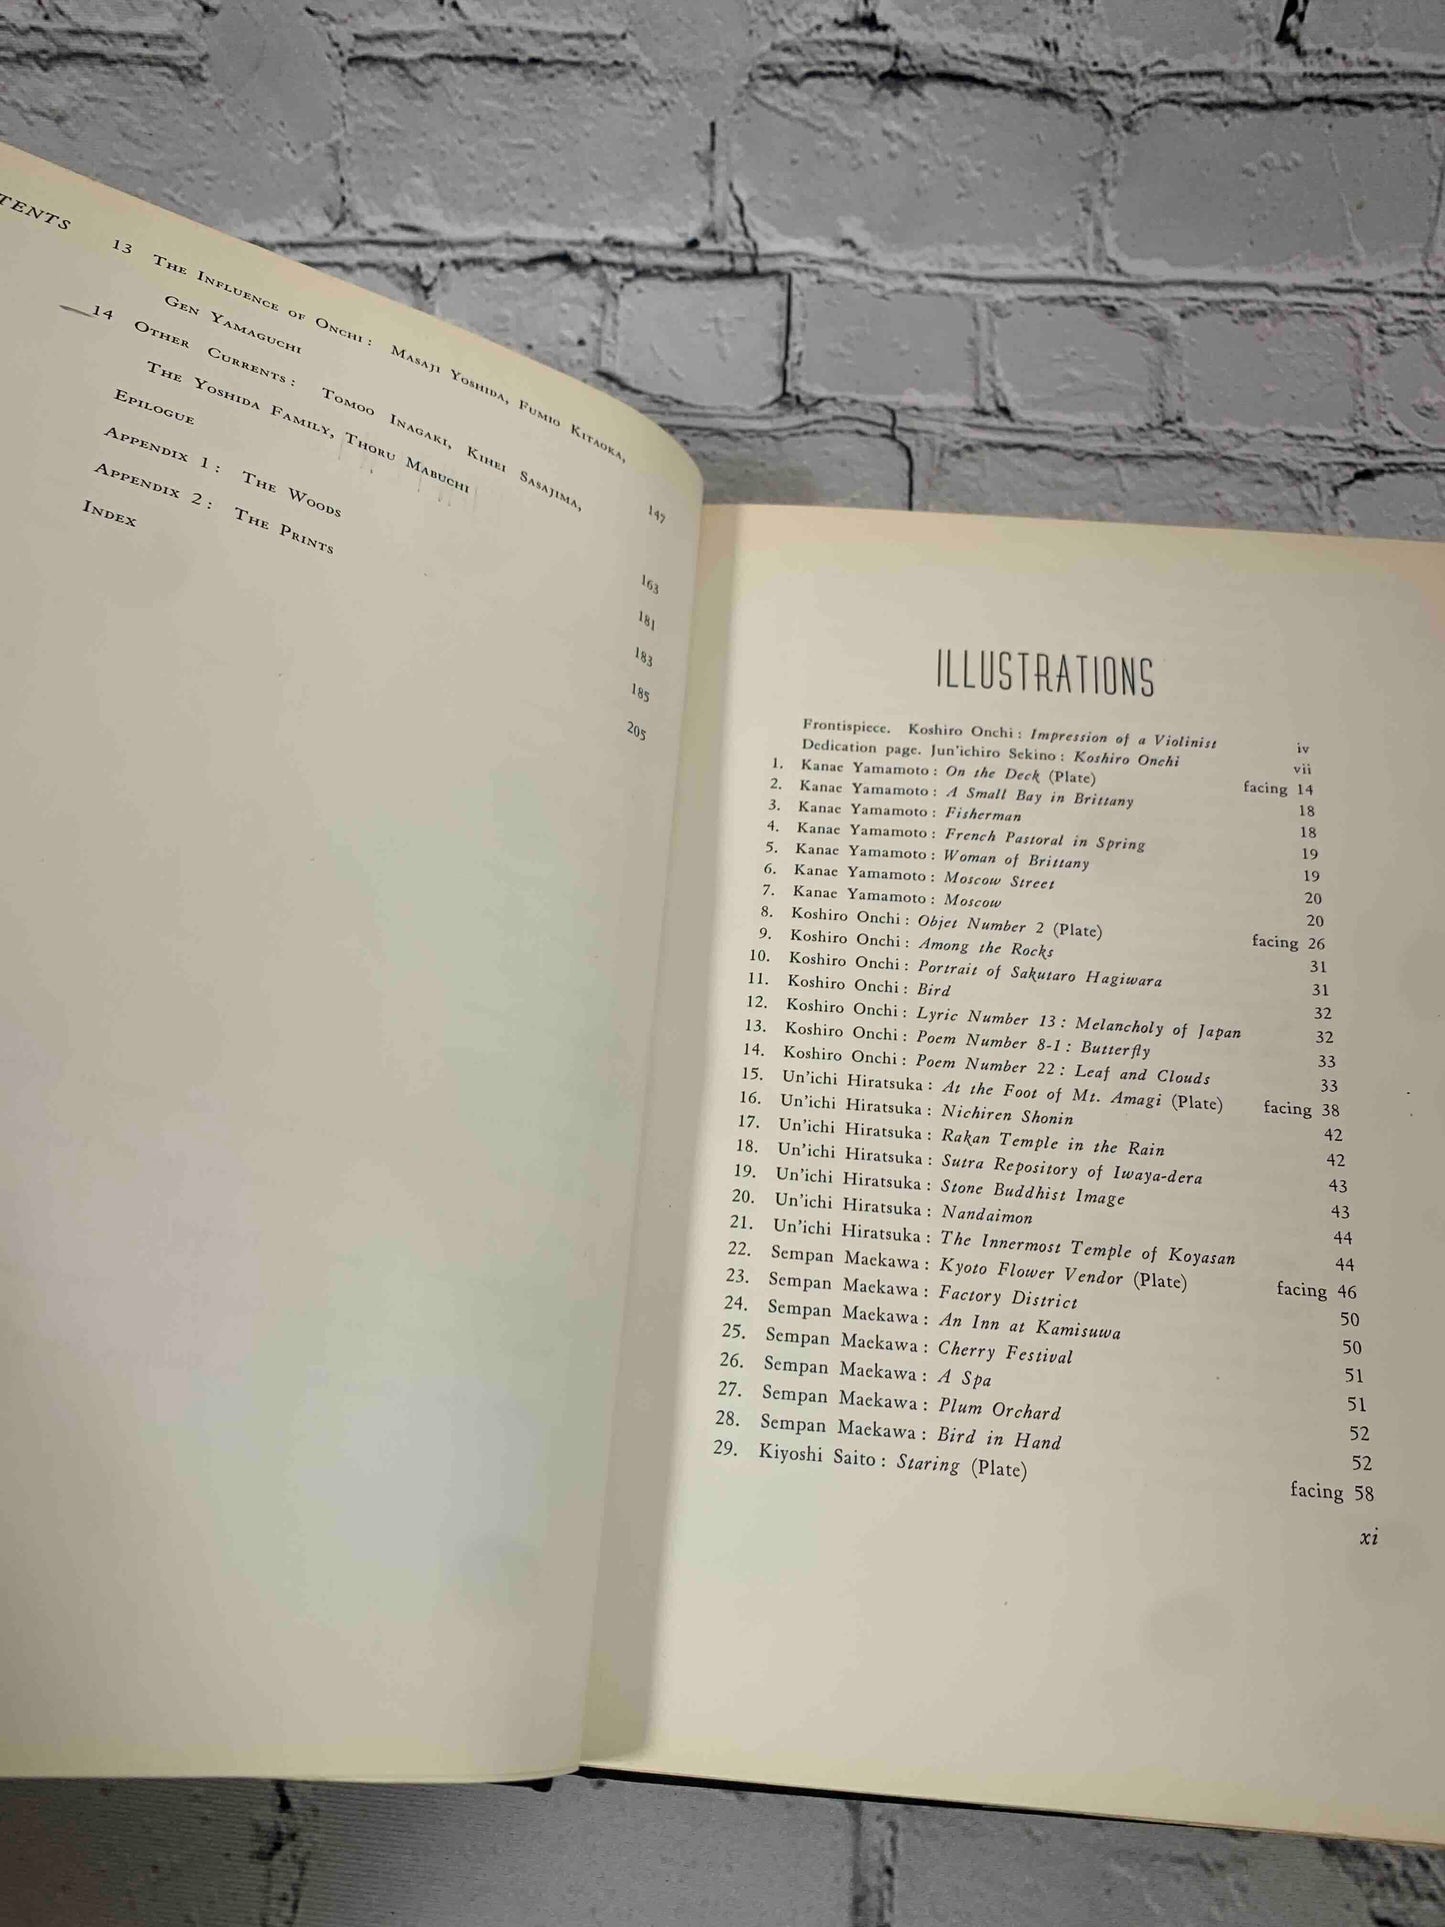 TENTS
13 The Influence of Onchi: Masaji Yoshida, Fumio Kitaoka,
Gen Yamaguchi 147
14 Other Currents: Tomoo Inagaki, Kihei Sasajima,
The Yoshida Family, Thoru Mabuchi 163
Epilogue 181
Appendix 1: The Woods 183
Appendix 2: The Prints 185
Index 205
ILLUSTRATIONS
Frontispiece. Koshiro Onchi: Impression of a Violinist iv
Dedication page. Jun'ichiro Sekino: Koshiro Onchi vii
1. Kanae Yamamoto: On the Deck (Plate) facing 14
2. Kanae Yamamoto: A Small Bay in Brittany 18
3. Kanae Yamamoto: Fisherman 18
4. Kanae Yamamoto: French Pastoral in Spring 19
5. Kanae Yamamoto: Woman of Brittany 19
6. Kanae Yamamoto: Moscow Street 20
7. Kanae Yamamoto: Moscow 20
8. Koshiro Onchi: Objet Number 2 (Plate) facing 26
9. Koshiro Onchi: Among the Rocks 31
10. Koshiro Onchi: Portrait of Sakutaro Hagiwara 31
11. Koshiro Onchi: Bird 32
12. Koshiro Onchi: Lyric Number 13: Melancholy of Japan 32
13. Koshiro Onchi: Poem Number 8-1: Butterfly 33
14. Koshiro Onchi: Poem Number 22: Leaf and Clouds 33
15. Un'ichi Hiratsuka: At the Foot of Mt. Amagi (Plate) facing 38
16. Un'ichi Hiratsuka: Nichiren Shonin 42
17. Un'ichi Hiratsuka: Rakan Temple in the Rain 42
18. Un'ichi Hiratsuka: Sutra Repository of Iwaya-dera 43
19. Un'ichi Hiratsuka: Stone Buddhist Image 43
20. Un'ichi Hiratsuka: Nandaimon 44
21. Un'ichi Hiratsuka: The Innermost Temple of Koyasan 44
22. Sempan Maekawa: Kyoto Flower Vendor (Plate) facing 46
23. Sempan Maekawa: Factory District 50
24. Sempan Maekawa: An Inn at Kamisuwa 50
25. Sempan Maekawa: Cherry Festival 51
26. Sempan Maekawa: A Spa 51
27. Sempan Maekawa: Plum Orchard 52
28. Sempan Maekawa: Bird in Hand 52
29. Kiyoshi Saito: Staring (Plate) facing 58
xi